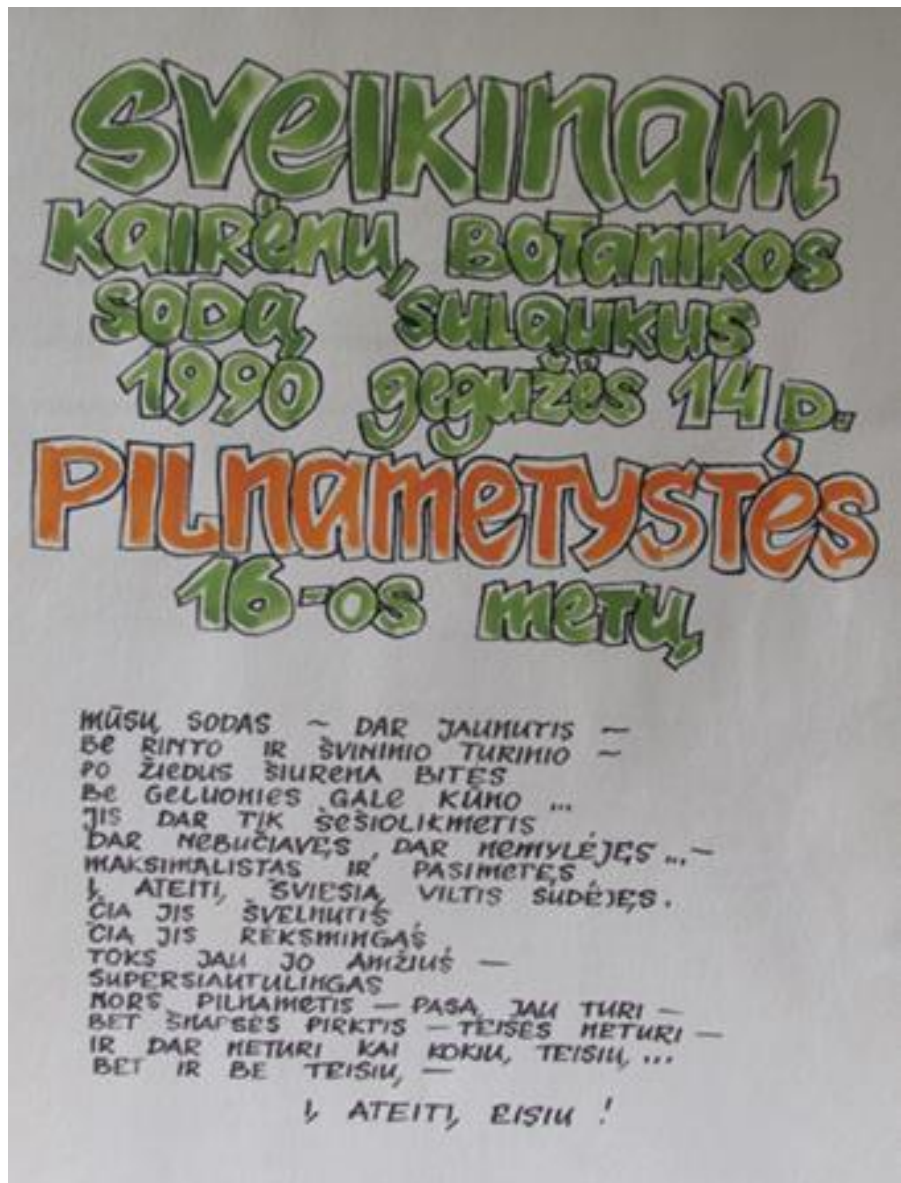 SVEIKINAM
KAIRĖNŲ BOTANIKOS
SODĄ SULAUKUS
1990 GEGUŽĖS 14 D.
PILNAMETYSTĖS
16-OS METŲ
MŪSŲ SODAS ~ DAR JAUNUTIS —
BE RIMTO IR ŠVININIO TURINIO ~
PO ŽIEDUS ŠIURENA BITĖS
BE GELUONIES GALE KŪNO ...
JIS DAR TIK ŠEŠIOLIKMETIS
DAR NEBUČIAVĘS, DAR NEMYLĖJĘS ... —
MAKSIMALISTAS IR PASIMETĘS
Į ATEITĮ ŠVIESIĄ VILTIS SUDĖJĘS.
ČIA JIS ŠVELNUTIS
ČIA JIS REKSMINGAS
TOKS JAU JO AMŽIUS —
SUPERSIAUTULINGAS
NORS PILNAMETIS — PASĄ JAU TURI —
BET ŠNAPSĖS PIRKTIS — TEISĖS NETURI —
IR DAR NETURI KAI KOKIŲ TEISIŲ ...
BET IR BE TEISIŲ —
Į ATEITĮ EISIU !